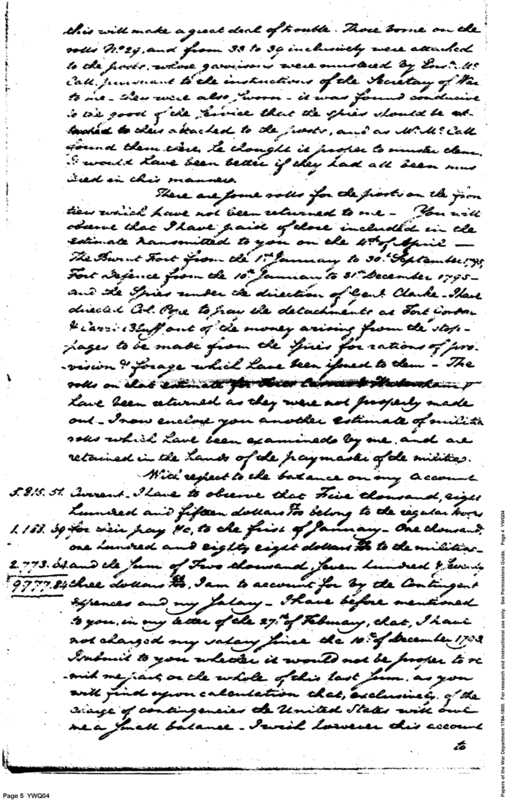 this will make a great deal of trouble. Those borne on the
rolls No. 29, and from 33 to 39 inclusively were attached
to the posts, whose garrisons were mustered by Ens. Mc
Call, pursuant to the instructions of the Secretary of War
to me - they were also sworn - it was found conducive
to the good of the service that the spies should be
attached to the posts, and as Mr. McCall
found them there, he thought it proper to muster them,
I would have been better if they had all been mus
tered in this manner.
There are some rolls for the posts on the fron
tiers which have not been returned to me - You will
observe that I have paid of those included in the
estimate transmitted to you on the 4th of April -
The Burnt Fort from the 1st January to 30th September 1795,
Fort Defence from the 10th January to 31st December 1795 -
and the Spies under the direction of Genl. Clarke - I have
directed Col. Pope to pay the detachments at Fort
& Carrs Bluff out of the money arising from the stop-
pages to be made from the spies for rations of pro
vision & forage which have been issued to them - The
rolls on that estimate for
have been returned as they were not properly made
out - I now enclose you another estimate of militia
rolls which have been examined by me, and are
retained in the hands of the paymaster of the militia.
With respect to the balance on my account
5.815.51. Current. I have to observe that Five thousand, eight
hundred and fifteen dollars belong to the regular troops
1.188.39 for their pay &c, to the first of January - One thousand
one hundred and eighty eight dollars to the militia -
2.773. and the sum of Two thousand, seven hundred & seventy
9777.84 three dollars, I am to account for by the Contingent
expences and my Salary - I have before mentioned
to you, in my letter of the 27th of February, that, I have
not charged my salary since the 10th of December 1793.
I submit to you whether it would not be proper to re
mit me part, or the whole of this last sum, as you
will find upon calculation that, exclusively of the
charge of contingencies the United States will owe
me a small balance - I wish however this account
to
Page 5 YWQ04
Papers of the War Department 1784-1800. For research and instructional use only. See Permissions Guide. Page 4 YWQ04